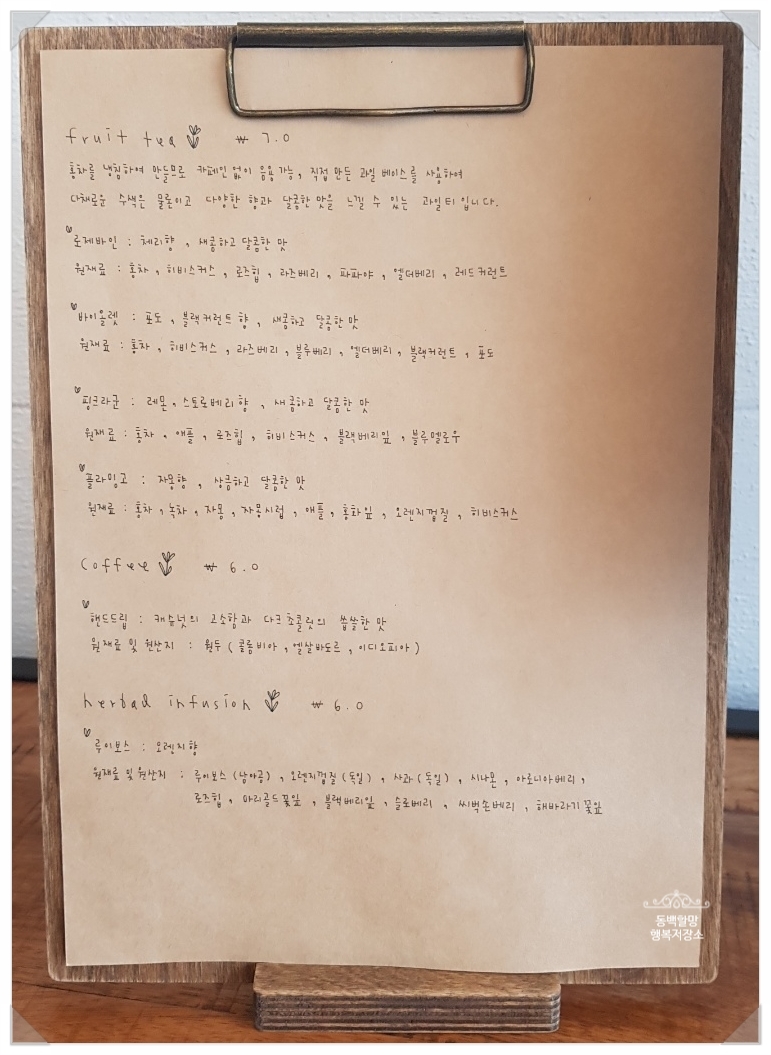 fruit tea ₩ 7.0
홍차를 냉침하여 만들므로 카페인 없이 음용 가능, 직접 만든 과일 베이스를 사용하여
다채로운 수색은 물론이고 다양한 향과 달콤한 맛을 느낄 수 있는 과일티 입니다.
로제바인 : 체리향 , 새콤하고 달콤한 맛
원재료 : 홍차 , 히비스커스 , 로즈힙 , 라즈베리 , 파파야 , 엘더베리 , 레드커런트
바이올렛 : 포도 , 블랙커런트 향 , 새콤하고 달콤한 맛
원재료 : 홍차 , 히비스커스 , 라즈베리 , 블루베리 , 엘더베리 , 블랙커런트 , 포도
핑크라군 : 레몬 , 스토로베리향 , 새콤하고 달콤한 맛
원재료 : 홍차 , 애플 , 로즈힙 , 히비스커스 , 블랙베리잎 , 블루멜로우
플라밍고 : 자몽향 , 상큼하고 달콤한 맛
원재료 : 홍차 , 녹차 , 자몽 , 자몽시럽 , 애플 , 홍화잎 , 오렌지껍질 , 히비스커스
coffee ₩ 6.0
핸드드립 : 캐슈넛의 고소함과 다크초콜릿의 씁쓸한 맛
원재료 및 원산지 : 원두 ( 콜롬비아 , 엘살바도르 , 이디오피아 )
herbal infusion ₩ 6.0
루이보스 : 오렌지향
원재료 및 원산지 : 루이보스 (남아공) , 오렌지껍질 (독일) , 사과 (독일) , 시나몬 , 아로니아베리 ,
로즈힙 , 마리골드꽃잎 , 블랙베리잎 , 슬로베리 , 씨벅손베리 , 해바라기꽃잎
동백할망
행복저장소